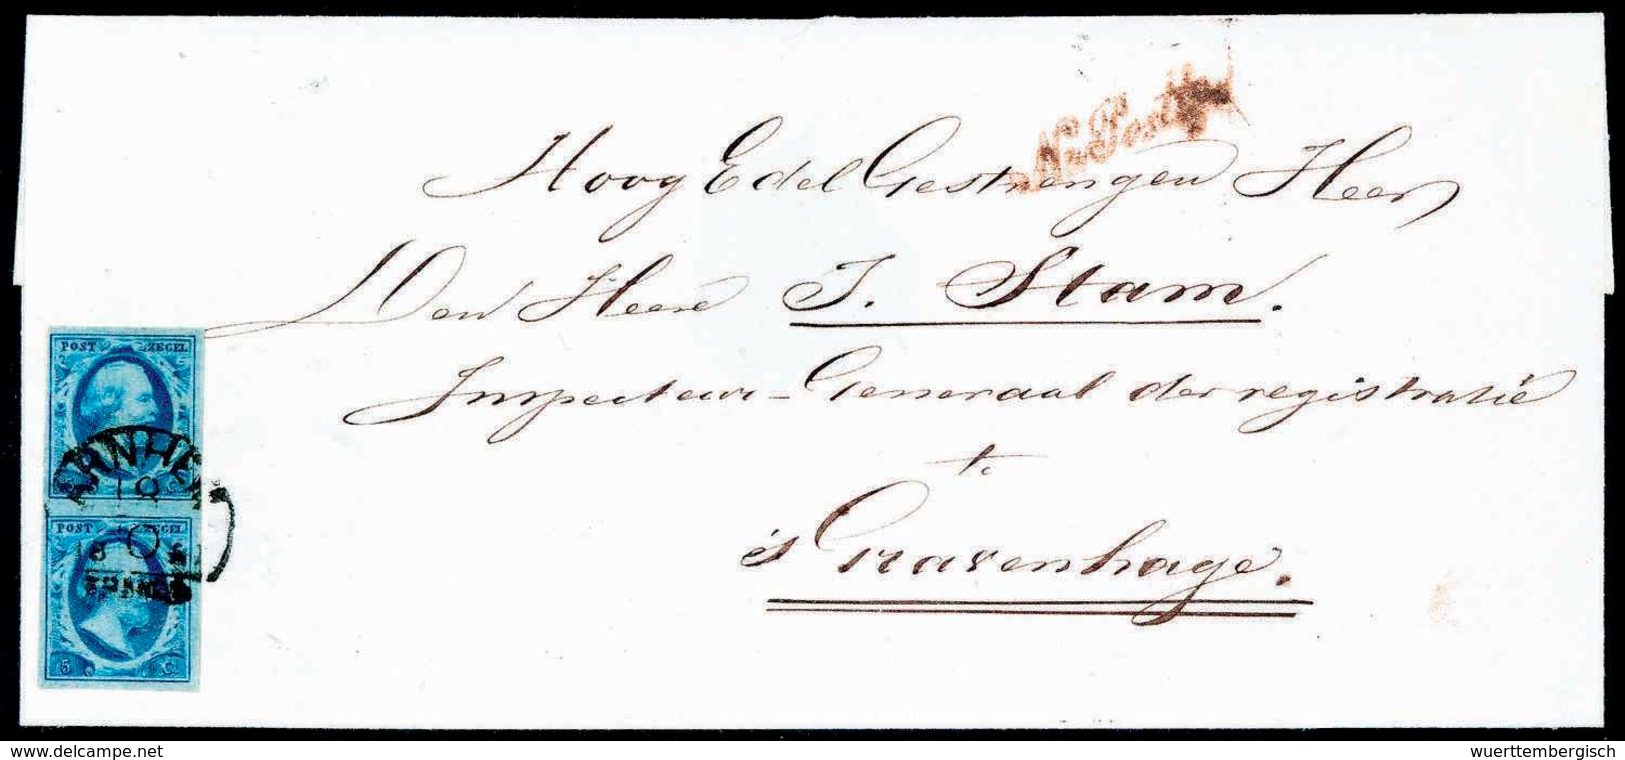 Na Posttijd
Hoog Edel Gestrengen Heer
Den Heere J. Stam.
Inspecteur-Generaal der registratie
te
's Gravenhage.
POST ZEGEL
5 C
ARNHEM
18
POST ZEGEL
18 6
FRANCO
5 C
www.delcampe.net
wuerttembergisch